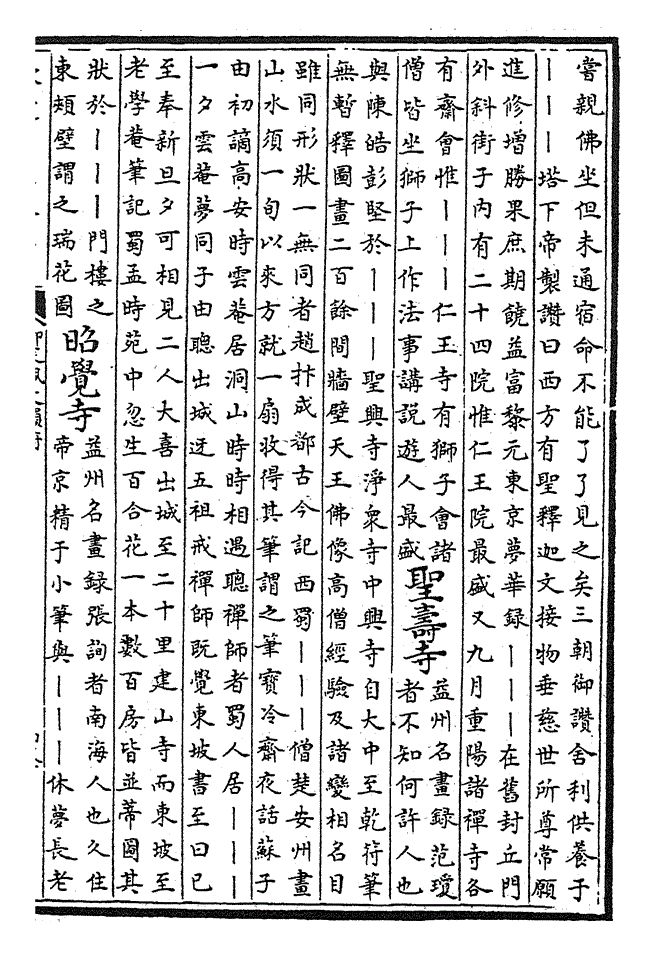 嘗親佛坐但未通宿命不能了了見之矣三朝御讚舍利供養于
｜｜｜塔下帝製讚曰西方有聖釋迦文接物垂慈世所尊常願
進修增勝果庶期饒益富黎元東京夢華録｜｜｜在舊封丘門
外斜街子内有二十四院惟仁王院最盛又九月重陽諸禪寺各
有齋會惟｜｜｜仁王寺有獅子會諸
僧皆坐獅子上作法事講説遊人最盛
聖壽寺
益州名畫録范瓊
者不知何許人也
與陳皓彭堅於｜｜｜聖興寺淨衆寺中興寺自大中至乾符筆
無暫釋圖畫二百餘間牆壁天王佛像高僧經驗及諸變相名目
雖同形狀一無同者趙抃成都古今記西蜀｜｜｜僧楚安州畫
山水須一旬以來方就一扇收得其筆謂之筆寶冷齋夜話蘇子
由初謫高安時雲菴居洞山時時相遇聰禪師者蜀人居｜｜｜
一夕雲菴夢同子由聰出城迓五祖戒禪師既覺東坡書至曰已
至奉新旦夕可相見二人大喜出城至二十里建山寺而東坡至
老學菴筆記蜀孟時苑中忽生百合花一本數百房皆並蒂圖其
狀於｜｜｜門樓之
東頰壁謂之瑞花圖
昭覺寺
益州名畫録張詢者南海人也久住
帝京精于小筆與｜｜｜休夢長老